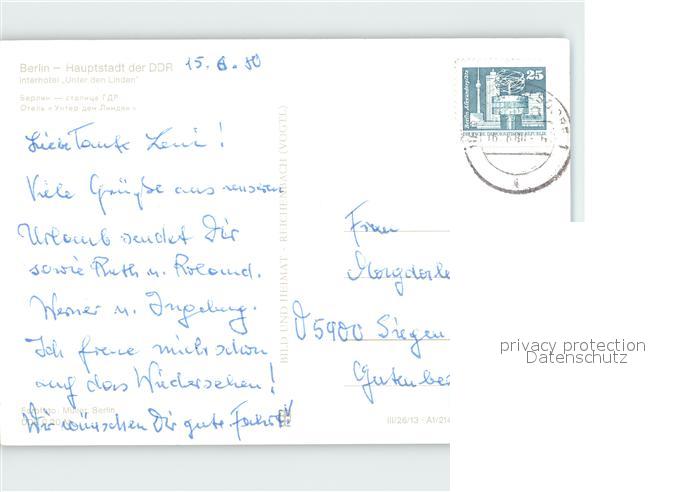 Berlin – Hauptstadt der DDR
Interhotel „Unter den Linden“
Берлин — столица ГДР
Отель «Унтер ден Линден»
15.6.80
Liebe Tante Leni!
Viele Grüße aus unserem
Urlaub sendet Dir
sowie Ruth u. Roland.
Werner u. Ingeburg.
Ich freue mich schon
auf das Wiedersehen!
Wir wünschen Dir gute Fahrt!
Müller, Berlin
BILD UND HEIMAT · REICHENBACH (VOGTL)
25
Berlin, Alexanderplatz
Frau
5900 Siegen
Gutenbe
III/26/13 · A1/214
privacy protection
Datenschutz